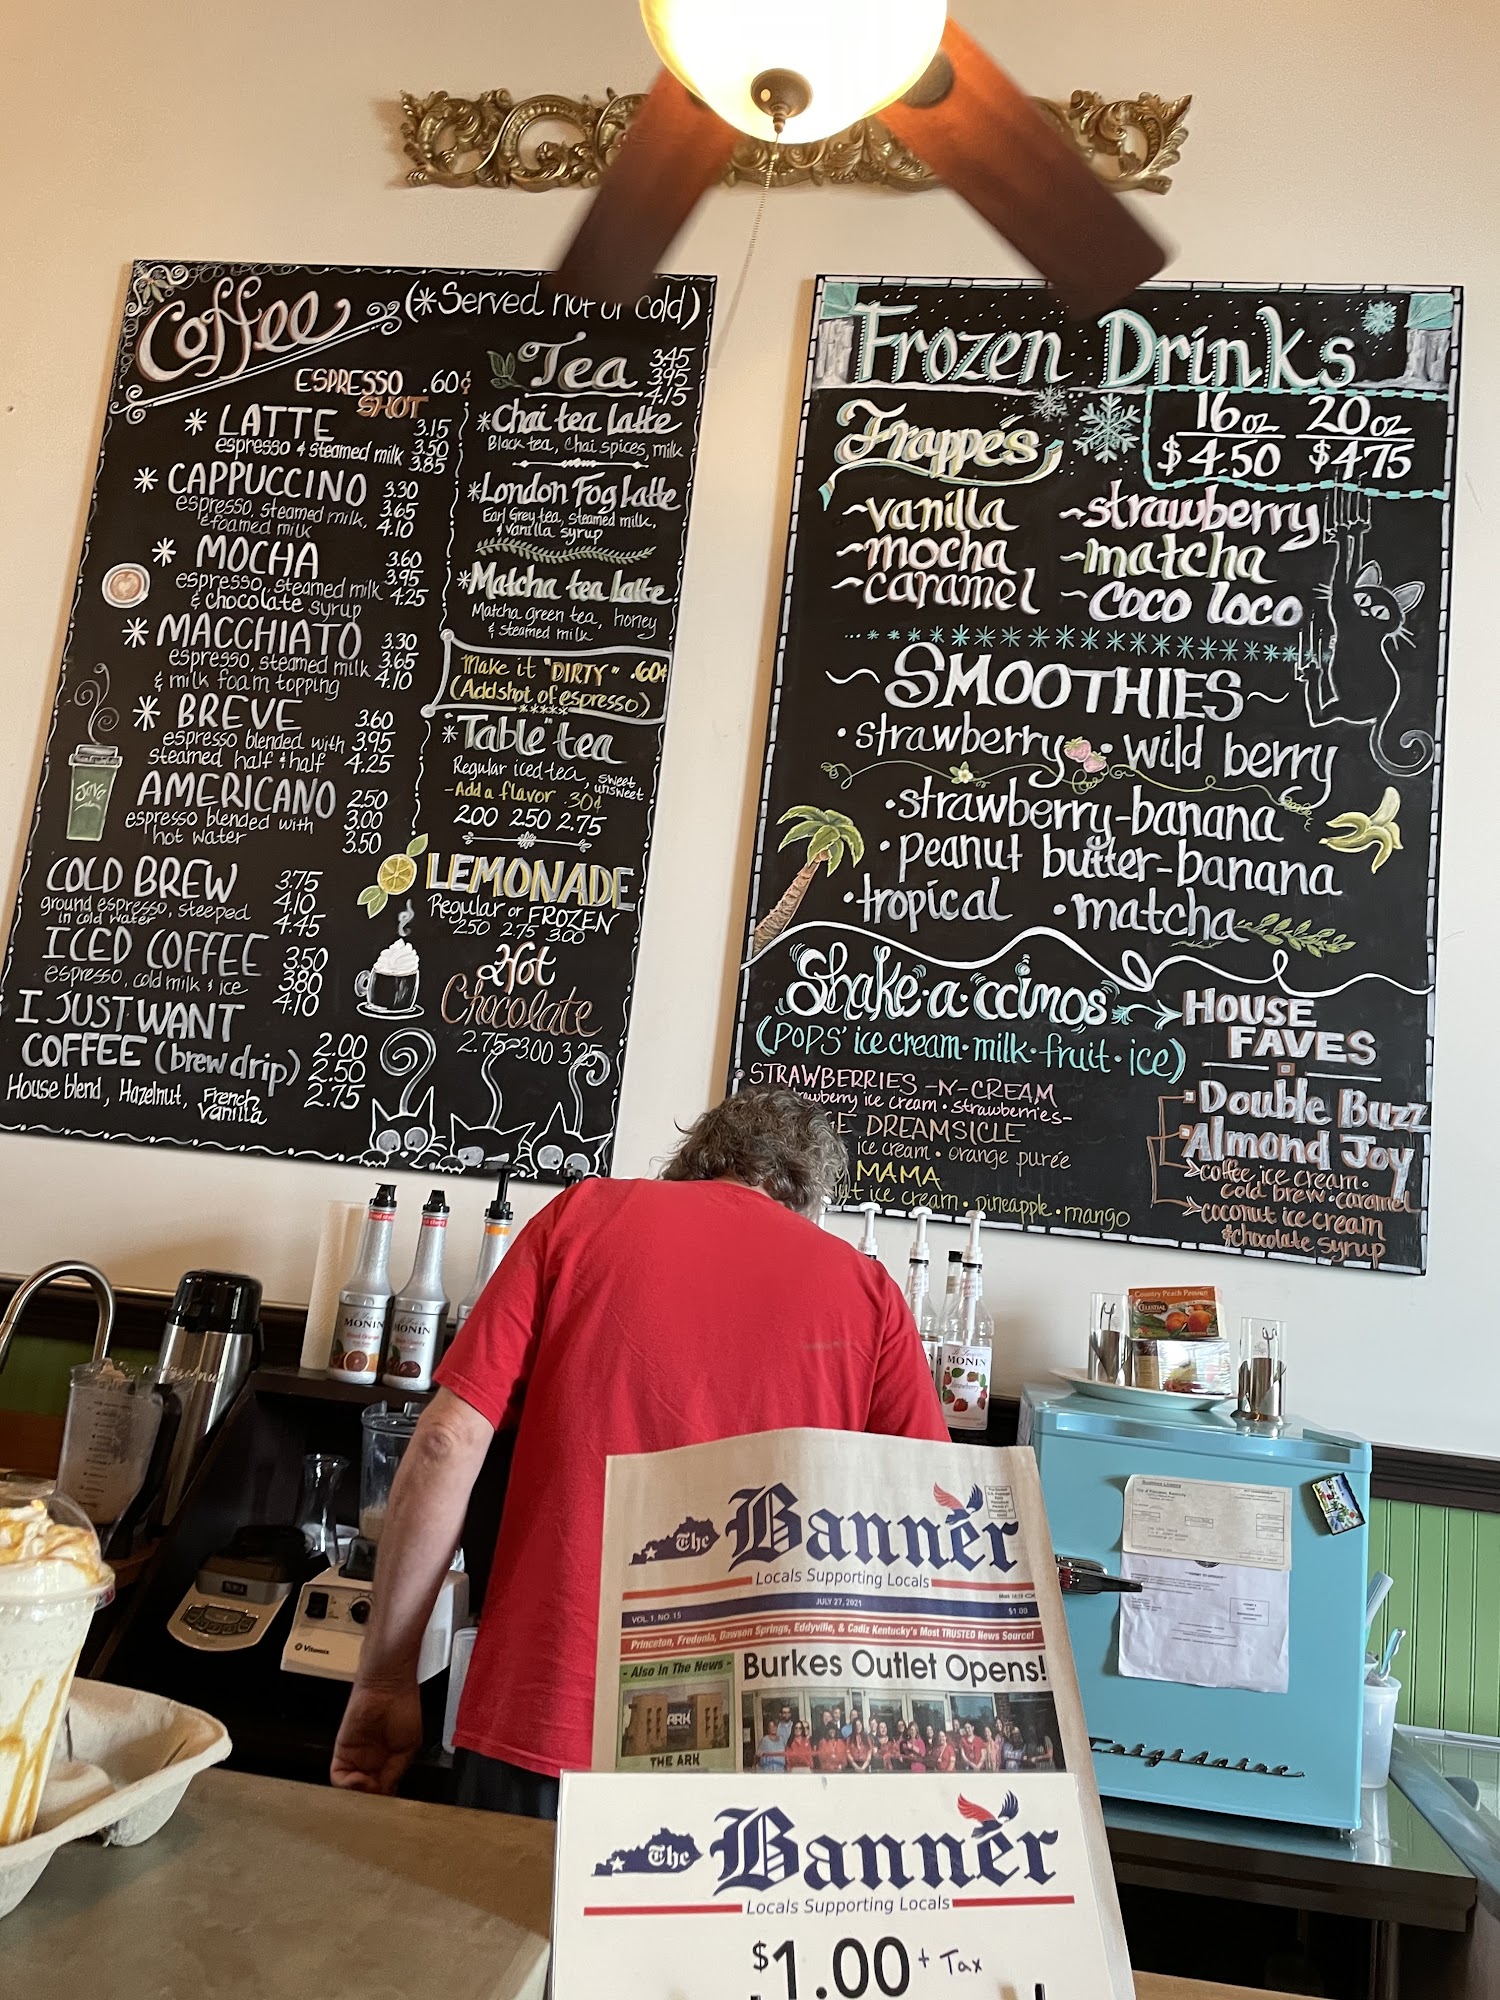 Coffee (*Served hot or cold)
ESPRESSO SHOT .60¢
* LATTE 3.15
espresso & steamed milk 3.50
3.85
* CAPPUCCINO 3.30
espresso, steamed milk, 3.65
& foamed milk 4.10
* MOCHA 3.60
espresso, steamed milk 3.95
& chocolate syrup 4.25
* MACCHIATO 3.30
espresso, steamed milk 3.65
& milk foam topping 4.10
* BREVE 3.60
espresso blended with 3.95
steamed half & half 4.25
AMERICANO 2.50
espresso blended with 3.00
hot water 3.50
COLD BREW 3.75
ground espresso, steeped 4.10
in cold water 4.45
ICED COFFEE 3.50
espresso, cold milk & ice 3.80
4.10
I JUST WANT
COFFEE (brew drip) 2.00
2.50
House blend, Hazelnut, French Vanilla 2.75
Tea 3.45
3.95
4.15
*Chai tea latte
Black tea, Chai spices, milk
*London Fog Latte
Earl Grey tea, steamed milk,
& vanilla syrup
*Matcha tea Latte
Matcha green tea, honey
& steamed milk
Make it "DIRTY" .60¢
(Add shot of espresso)
*****
*"Table" tea
Regular iced tea, sweet
unsweet
-Add a flavor .30¢
2.00 2.50 2.75
LEMONADE
Regular or FROZEN
2.50 2.75 3.00
Hot
Chocolate
2.75 3.00 3.25
Frozen Drinks
Frappés
16 oz 20 oz
$4.50 $4.75
~vanilla ~strawberry
~mocha ~matcha
~caramel ~coco loco
~SMOOTHIES~
•strawberry •wild berry
•strawberry-banana
•peanut butter-banana
•tropical •matcha
Shake•a•'ccinos
(POPS' ice cream•milk•fruit•ice)
STRAWBERRIES -N- CREAM
strawberry ice cream • strawberries-
DREAMSICLE
ice cream • orange purée
MAMA
ice cream • pineapple • mango
HOUSE
FAVES
Double Buzz
Almond Joy
coffee ice cream•
cold brew•caramel
coconut ice cream
& chocolate syrup
MONIN
MONIN
MONIN
Country Peach Passion
CELESTIAL
Vitamix
Frigidaire
The Banner
Locals Supporting Locals
VOL. 1, NO. 15 JULY 27, 2021 $1.00
Princeton, Fredonia, Dawson Springs, Eddyville, & Cadiz Kentucky's Most TRUSTED News Source!
- Also In The News -
Burkes Outlet Opens!
ARK
THE ARK
The Banner
Locals Supporting Locals
$1.00 + Tax